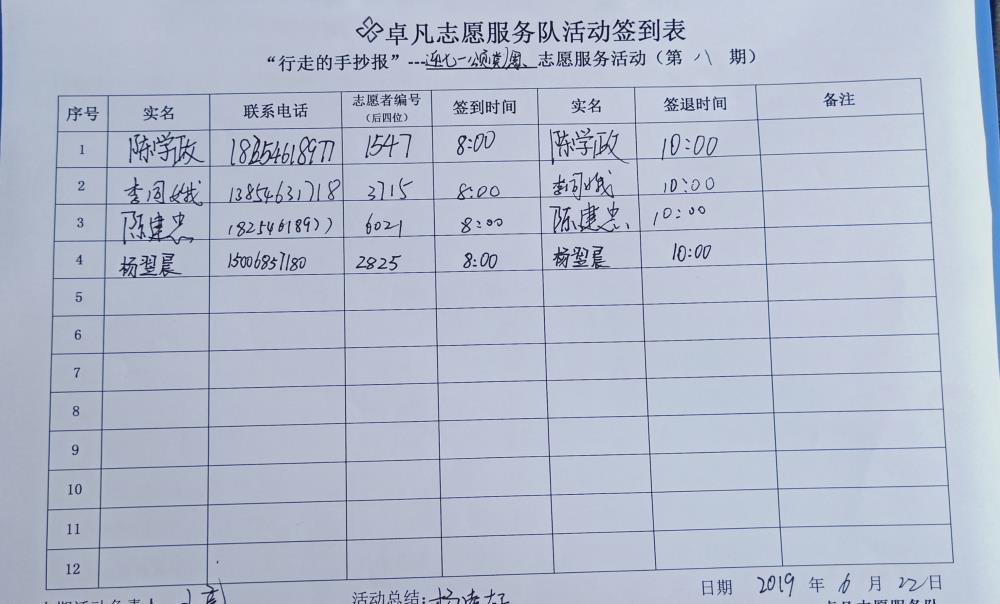 卓凡志愿服务队活动签到表
“行走的手抄报”---迎七一颂党周、志愿服务活动（第 八 期）
序号 实名 联系电话 志愿者编号（后四位） 签到时间 实名 签退时间 备注
1 陈学政 18254618977 1547 8:00 陈学政 10:00
2 李同娥 13854631718 3715 8:00 李同娥 10:00
3 陈建忠 18254618977 6021 8:00 陈建忠 10:00
4 杨翌晨 15006857180 2825 8:00 杨翌晨 10:00
5
6
7
8
9
10
11
12
日期 2019 年 6 月 22 日
本期活动负责人 活动总结:
卓凡志愿服务队